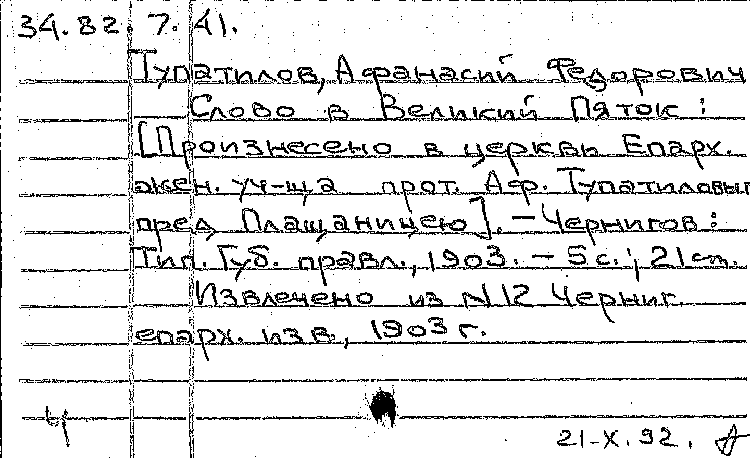 34.82.7.41.
Тупатилов, Афанасий Федорович
Слово в Великий Пяток:
[Произнесено в церкви Епарх.
жен. уч-ща прот. Аф. Тупатиловым
пред Плащаницею]. – Чернигов:
Тип. Губ. правл., 1903. – 5 с.; 21 см.
Извлечено из N12 Черниг.
епарх. изв., 1903 г.
21-X.92.